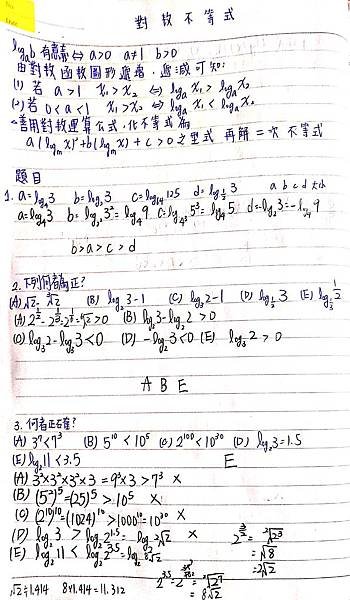 對數不等式
log_a b 有意義 ⇔ a>0 a≠1 b>0
由對數函數圖形遞增、遞減可知:
(1) 若 a>1 x₁>x₂ ⇔ log_a x₁ > log_a x₂
(2) 若 0<a<1 x₁>x₂ ⇔ log_a x₁ < log_a x₂
善用對數運算公式,化不等式為
a(log_m x)²+b(log_m x)+c>0之型式 再解二次不等式
題目
1. a=log₄3 b=log₂3 c=log₆₄125 d=log_{1/2}3 a b c d 大小
a=log₄3 b=log_{2²}3²=log₄9 c=log_{4³}5³=log₄5 d=-log₂3=-log₄9
b>a>c>d
2. 下列何者為正?
(A) √2-³√2 (B) log₂3-1 (C) log₃2-1 (D) log_{1/2}3 (E) log_{1/3}1/2
(B) log₂3-log₂2>0
(C) log₃2-log₃3<0 (D) -log₂3<0 (E) log₃2>0
A B E
3. 何者正確?
(A) 3⁷<7³ (B) 5¹⁰<10⁵ (C) 2¹⁰⁰<10³⁰ (D) log₂3=1.5
(E) log₂11<3.5 E
(A) 3²×3²×3²×3=9³×3>7³ ×
(B) (5²)⁵=(25)⁵>10⁵ ×
(C) (2¹⁰)¹⁰=(1024)¹⁰>1000¹⁰=10³⁰ ×
(D) log₂3>log₂2^{1.5}=log₂2√2 × 2^{3/2}=²√2³
(E) log₂11<log₂2^{3.5}=log₂8√2 =√8
=2√2
√2≒1.414 8×1.414=11.312 2^{3.5}=2^{7/2}=²√2⁷
=8√2